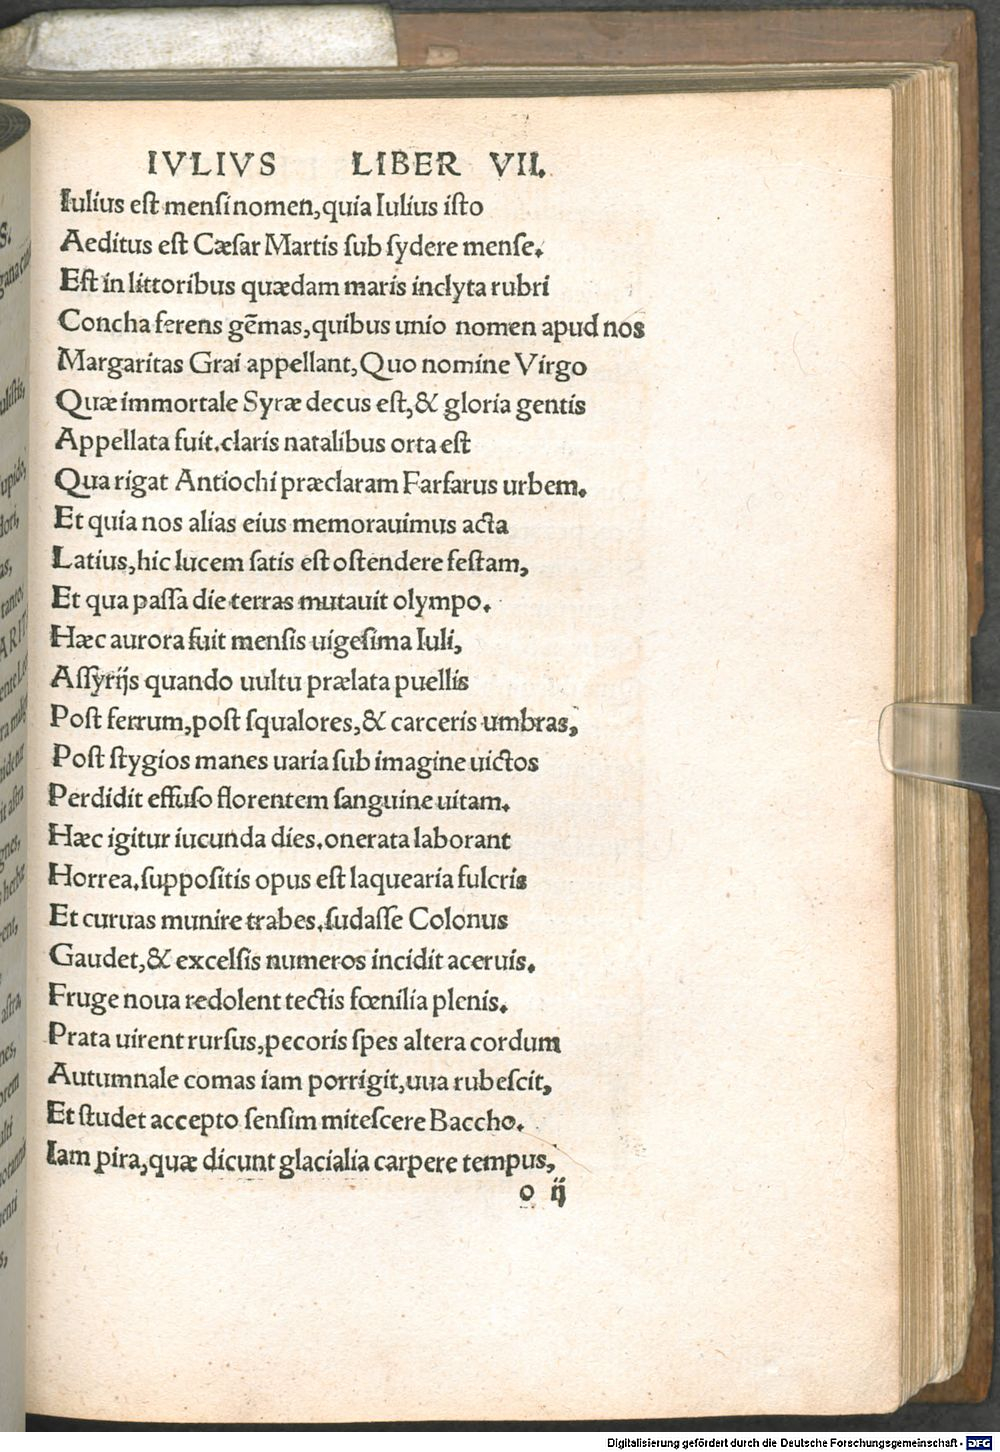 IVLIVS LIBER VII.
Iulius eſt menſi nomen, quia Iulius iſto
Aeditus eſt Cæſar Martis ſub ſydere menſe.
Eſt in littoribus quædam maris inclyta rubri
Concha ferens gẽmas, quibus unio nomen apud nos
Margaritas Grai appellant, Quo nomine Virgo
Quæ immortale Syræ decus eſt, & gloria gentis
Appellata fuit. claris natalibus orta eſt
Qua rigat Antiochi præclaram Farfarus urbem.
Et quia nos alias eius memorauimus acta
Latius, hic lucem ſatis eſt oſtendere feſtam,
Et qua paſſa die terras mutauit olympo.
Hæc aurora fuit menſis uigeſima Iuli,
Aſſyrijs quando uultu prælata puellis
Poſt ferrum, poſt ſqualores, & carceris umbras,
Poſt ſtygios manes uaria ſub imagine uictos
Perdidit effuſo florentem ſanguine uitam.
Hæc igitur iucunda dies. onerata laborant
Horrea. ſuppoſitis opus eſt laquearia fulcris
Et curuas munire trabes. ſudaſſe Colonus
Gaudet, & excelſis numeros incidit aceruis.
Fruge noua redolent tectis fœnilia plenis.
Prata uirent rurſus, pecoris ſpes altera cordum
Autumnale comas iam porrigit, uua rubeſcit,
Et ſtudet accepto ſenſim miteſcere Baccho.
Iam pira, quæ dicunt glacialia carpere tempus,
o ij
Digitalisierung gefördert durch die Deutsche Forschungsgemeinschaft - DFG